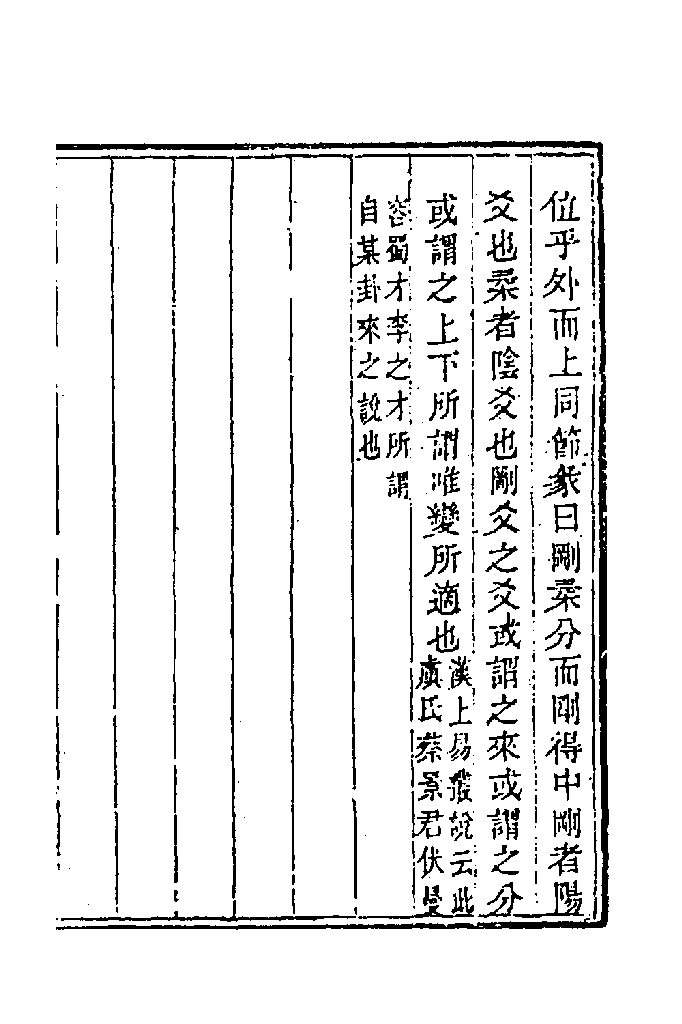 位乎外而上同節彖曰剛柔分而剛得中剛者陽
爻也柔者陰爻也剛爻之爻或謂之來或謂之分
或謂之上下所謂唯變所適也漢上易叢說云此
虞氏蔡景君伏曼
容蜀才李之才所謂
自某卦來之說也